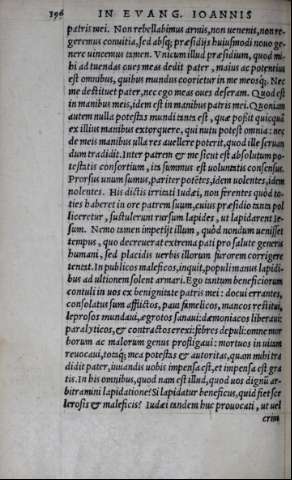 396 IN EVANG. IOANNIS
patris mei. Non rebellabimus armis, non venenis, non re
geremus convitia, sed absq; præsidijs huiusmodi novo ge
nere vincemus tamen. Vnicum illud præsidium, quod mi
bi ad tuendas oves meas dedit pater, maius ac potentius
est omnibus, quibus mundus coorietur in me meosq;. Nec
me destituet pater, nec ego meas oves deseram. Quod est
in manibus meis, idem est in manibus patris mei. Quoniam
autem nulla potestas mundi tanta est, quæ possit quicquã
ex illius manibus extorquere, qui nutu potest omnia: nec
de meis manibus ulla res auellere poterit, quod ille servan
dum tradidit. Inter patrem & me sicut est absolutum po-
testatis consortium, ita summus est voluntatis consensus.
Prorsus unum sumus, pariter potẽtes, idem volentes, idem
nolentes. His dictis irritati Iudæi, non ferentes quòd to-
ties haberet in ore patrem suum, cuius præsidio tanta pol
liceretur, sustulerunt rursum lapides, ut lapidarent Ie-
sum. Nemo tamen impetijt illum, quòd nondum venisset
tempus, quo decreverat extrema pati pro salute generis
humani, sed placidis verbis illorum furorem corrigere
tentat. In publicos maleficos, inquit, populi manus lapidi-
bus ad ultionem solent armari. Ego tantum beneficiorum
contuli in vos ex benignitate patris mei: docui errantes,
consolatus sum afflictos, pavi famelicos, mancos restitui,
leprosos mundavi, ægrotos sanavi: dæmoniacos liberavi:
paralyticos, & contractos erexi: febres depuli: omne mor
borum ac malorum genus profligavi: mortuos in vitam
revocavi, totaq; mea potestas & autoritas, quam mihi tra
didit pater, iuvandis vobis impensa est, et impensa est gra
tis. In his omnibus, quod nam est illud, quod vos dignũ ar-
bitramini lapidatione? Si lapidatur beneficus, quid fiet sce
lerosis & maleficis? Iudæi tandem huc provocati, ut vel
crim